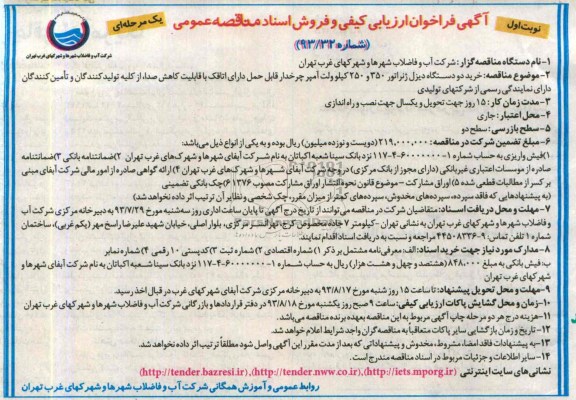 نوبت اول
آگهی فراخوان ارزیابی کیفی و فروش اسناد مناقصه عمومی
یک مرحله‌ای
(شماره ۹۳/۳۲)
شرکت آب و فاضلاب شهرها و شهرکهای غرب تهران
۱- نام دستگاه مناقصه گزار: شرکت آب و فاضلاب شهرها و شهرکهای غرب تهران
۲- موضوع مناقصه: خرید دو دستگاه دیزل ژنراتور ۳۵۰ و ۲۵۰ کیلو ولت آمپر چرخدار قابل حمل دارای اتاقک با قابلیت کاهش صدا، از کلیه تولیدکنندگان و تأمین کنندگان
دارای نمایندگی رسمی از شرکتهای تولیدی
۳- مدت زمان کار: ۱۵ روز جهت تحویل و یکسال جهت نصب و راه اندازی
۴- محل اعتبار: جاری
۵- سطح بازرسی: سطح دو
۶- مبلغ تضمین شرکت در مناقصه: ۲۱۹,۰۰۰,۰۰۰ (دویست و نوزده میلیون) ریال بوده و به یکی از انواع ذیل می‌باشد:
۱) فیش واریزی به حساب شماره ۱-۶۰۰۰۰۰۰-۴-۱۱۷ نزد بانک سینا شعبه اکباتان به نام شرکت آبفای شهرها و شهرک‌های غرب تهران ۲) ضمانتنامه بانکی ۳) ضمانتنامه
صادره از موسسات اعتباری غیربانکی (دارای مجوز از بانک مرکزی) در وجه شرکت آبفای شهرها و شهرک‌های غرب تهران ۴) ارائه گواهی صادره از امور مالی شرکت آبفای مبنی
بر کسر از مطالبات قطعی شده ۵) اوراق مشارکت – موضوع قانون نحوه انتشار اوراق مشارکت مصوب ۱۳۷۶ ۶) چک بانکی تضمینی
(به پیشنهادهایی که فاقد سپرده، سپرده‌های مخدوش، سپرده‌های کمتر از میزان مقرر، چک شخصی و نظایر آن ترتیب اثر داده نخواهد شد)
۷- مهلت و محل دریافت اسناد: متقاضیان شرکت در مناقصه می‌توانند از تاریخ درج آگهی تا پایان ساعت اداری روز سه‌شنبه مورخ ۹۳/۷/۲۹ به دبیرخانه مرکزی شرکت آب
و فاضلاب شهرها و شهرکهای غرب تهران به نشانی تهران – کیلومتر ۷ جاده مخصوص کرج، تهرانسر مرکزی، بلوار اصلی، خیابان شهید علیرضا راسخ مهر (یکم غربی)، ساختمان
شماره ۱ تلفن تماس ۹-۴۴۵۰۸۳۳۶ مراجعه و نسبت به دریافت اسناد اقدام نمایند.
۸- مدارک مورد نیاز جهت خرید اسناد: الف: معرفی نامه مشتمل بر ذکر ۱) شماره اقتصادی ۲) شماره ثبت ۳) کدپستی ۱۰ رقمی ۴) شماره نمابر
ب: فیش بانکی به مبلغ ۸۴۸۰۰۰ (هشتصد و چهل و هشت هزار) ریال به حساب شماره ۱-۶۰۰۰۰۰۰-۴-۱۱۷ نزد بانک سینا شعبه اکباتان به نام شرکت آبفای شهرها و
شهرکهای غرب تهران
۹- مهلت و محل تحویل پیشنهاد: تا ساعت ۱۵ روز شنبه مورخ ۹۳/۸/۱۷ به دبیرخانه مرکزی شرکت آبفای شهرکهای غرب تهران در قبال اخذ رسید.
۱۰- زمان و محل گشایش پاکات ارزیابی کیفی: ساعت ۹ صبح روز یکشنبه مورخ ۹۳/۸/۱۸ در دفتر قراردادها و بازرگانی شرکت آب و فاضلاب شهرها و شهرکهای غرب تهران
۱۱- هزینه درج هر دو مرحله چاپ آگهی مربوط به این مناقصه بعهده برنده مناقصه می‌باشد.
۱۲- تاریخ و زمان بازگشایی سایر پاکات متعاقبا به مناقصه گران واجد شرایط اعلام خواهد شد.
۱۳- به پیشنهادات فاقد امضا، مشروط، مخدوش و پیشنهاداتی که بعد از مدت مقرر این آگهی واصل شود مطلقاً ترتیب اثر داده نخواهد شد.
۱۴- سایر اطلاعات و جزئیات مربوط در اسناد مناقصه مندرج است.
نشانی‌های سایت اینترنتی (http://iets.mporg.ir)، (http://tender.nww.co.ir)، (http://tender.bazresi.ir)
روابط عمومی و آموزش همگانی شرکت آب و فاضلاب شهرها و شهرکهای غرب تهران